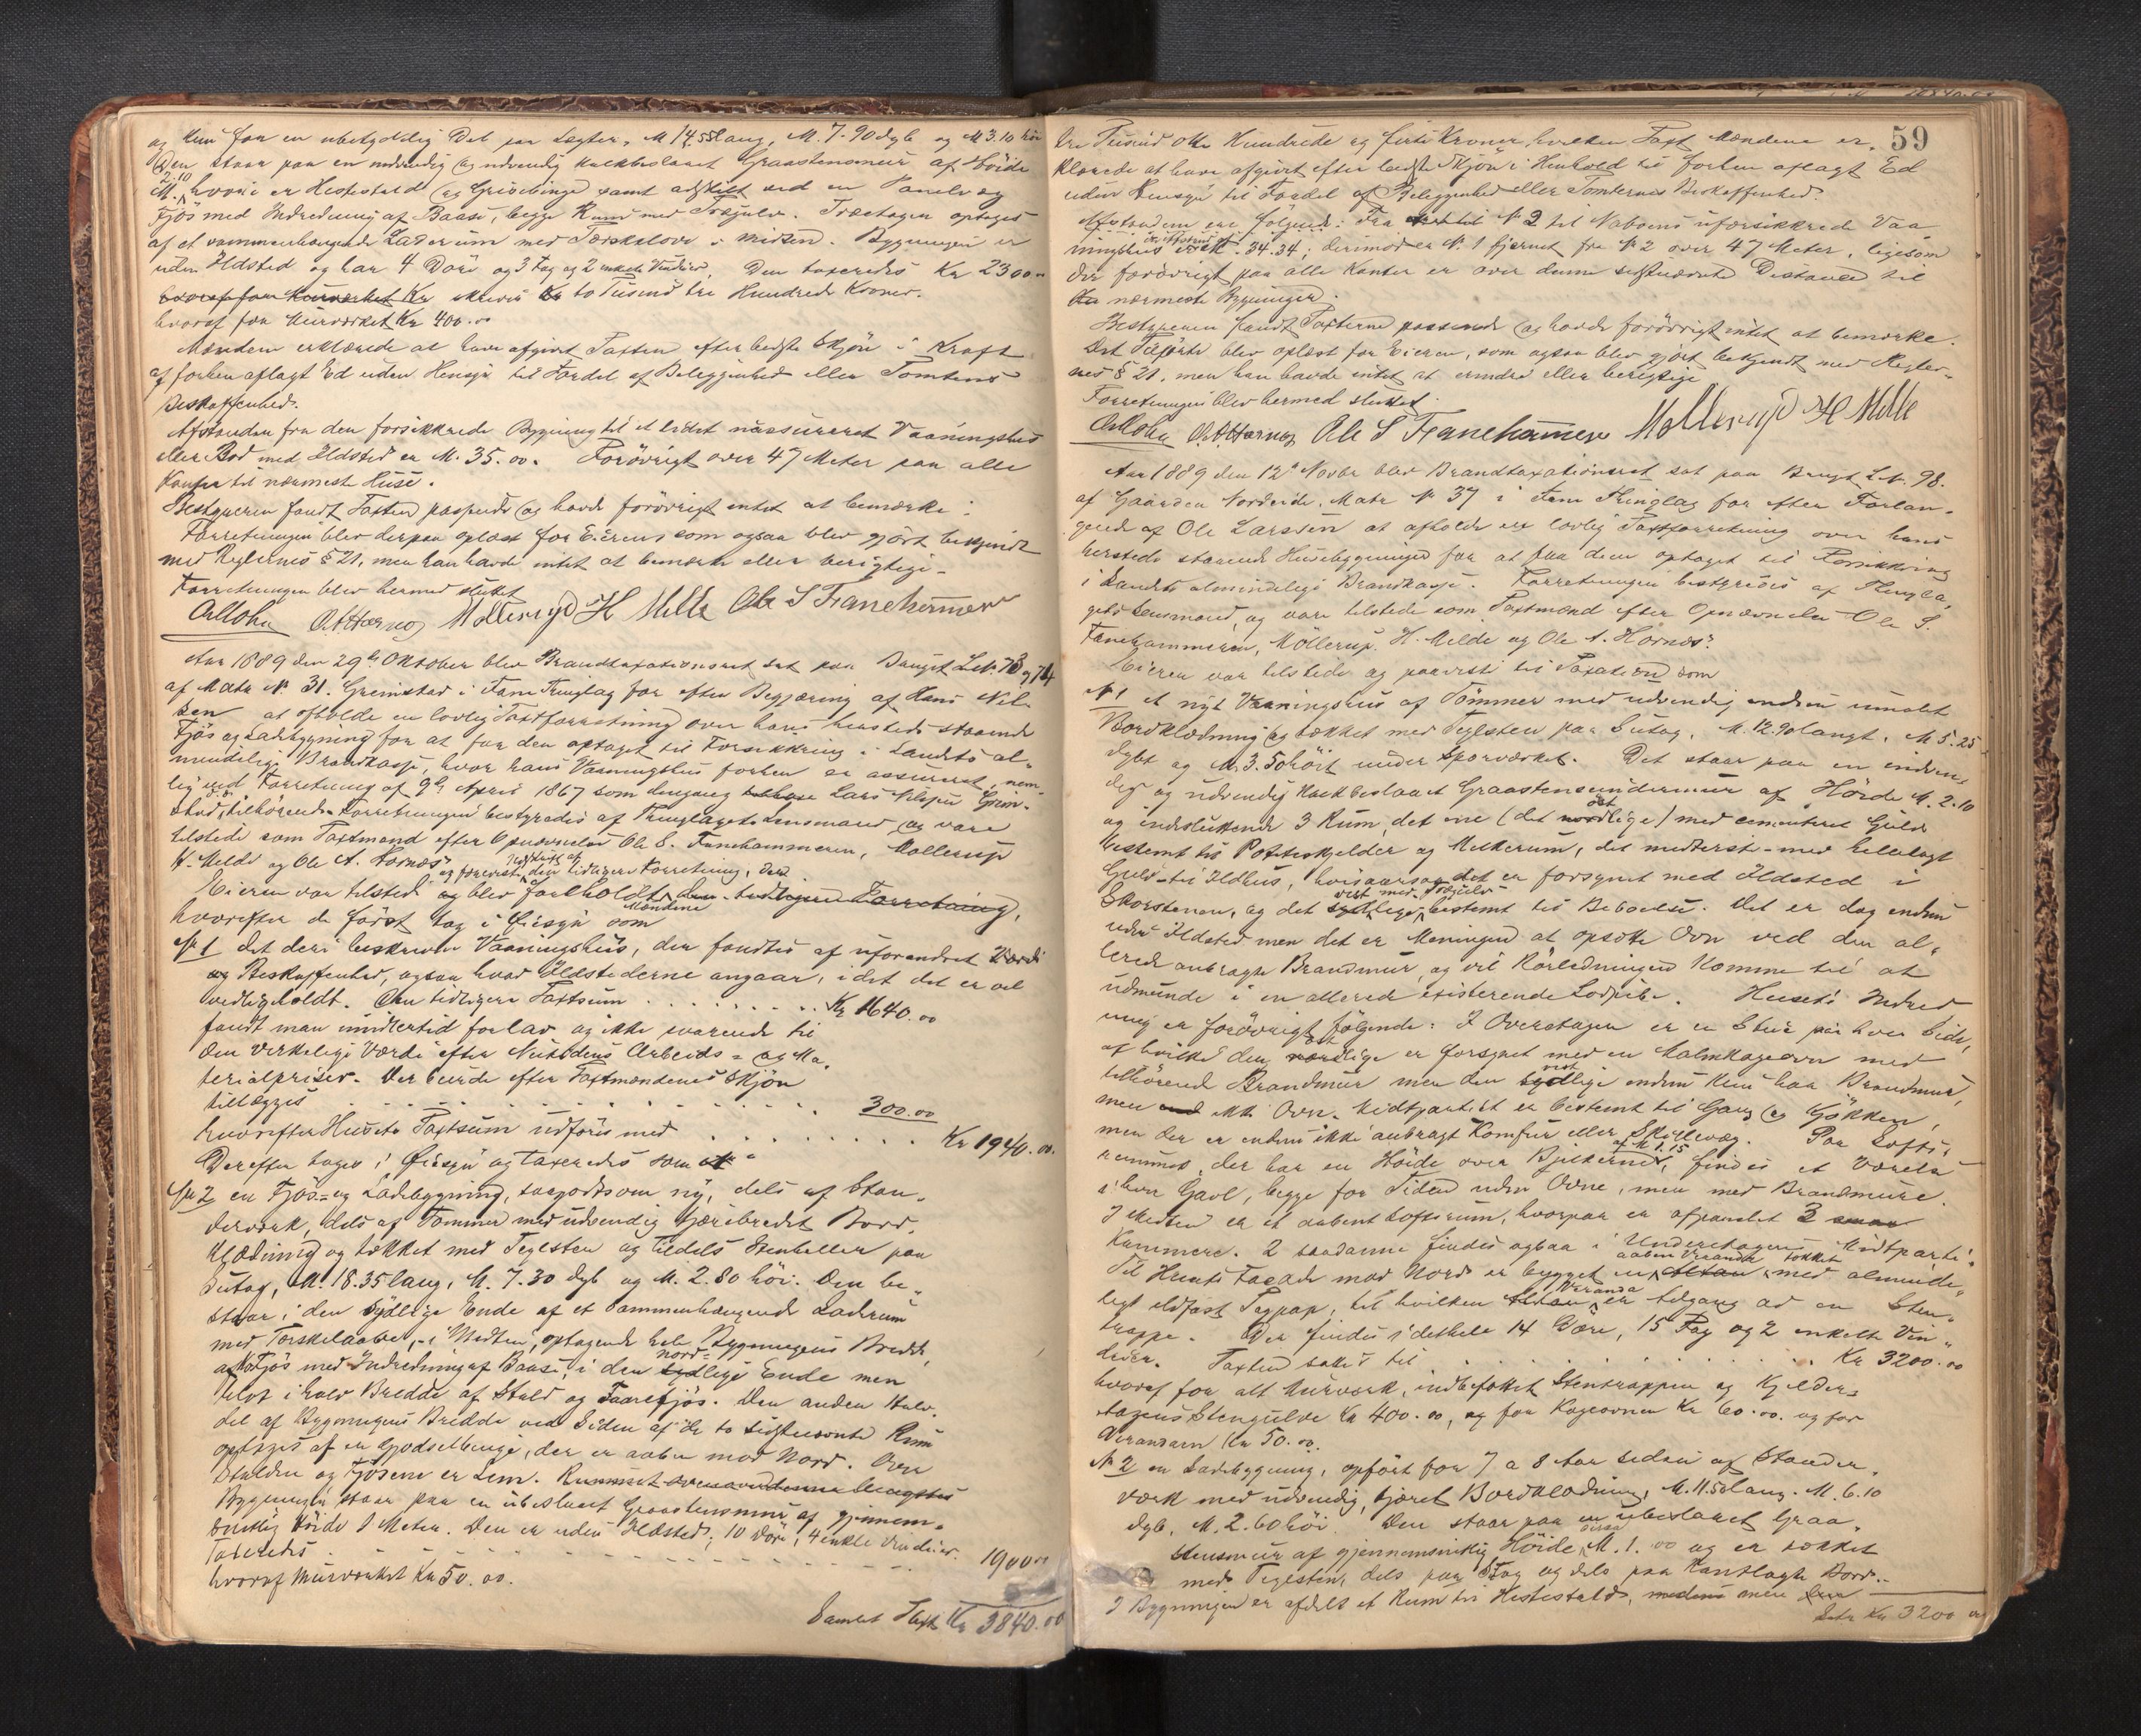 og kun for en ubetydelig Del paa Søgter. M 14.55 lang, M. 7.90 dyb og M 3.10 høi
Den staar paa en indvendig og udvendig kalkbeslaaet Graastensmur af Høide
M. 2.10 hvori er Hestestald og Grisebinge samt adskilt ved en Panelvæg
Fjøs med Indredning af Baase, begge Rum med Trægulv. Træetagen optages
af et sammenhængende Laderum med Tærskelove i Midten. Bygningen er
uden Ildsted og har 4 Døre og 3 Fag og 2 enkelte Vinduer. Den taxeredes Kr 2300.00
hvoraf for Murværket Kr skriver Kr to Tusind tre Hundrede Kroner.
hvoraf for Murværket Kr 400.00
Mændene erklærede at have afgivet Taxten efter bedste Skjøn i Kraft
af forhen aflagt Ed uden Hensyn til Fordel af Beliggenhed eller Tomtens
Beskaffenhed.
Afstanden fra den forsikkrede Bygning til et lidet uassureret Vaaningshus
eller Bod med Ildsted er M. 35.00. Forøvrigt over 47 Meter paa alle
Kanter til nærmeste Huse.
Bestyreren fandt Taxten passende og havde forøvrigt intet at bemærke.
Forretningen blev derpaa oplæst for Eieren som ogsaa blev gjort bekjendt
med Reglernes § 21, men han havde intet at bemærke eller berigtige.
Forretningen blev hermed sluttet
O. A. Hornes Møllerup H Milde Ole S Fanehammer
Aar 1889 den 29de Oktober blev Brandtaxationsret sat paa Bruget L.No. 73 og 74
af Matr No. 31. Greimstad i Fane Thinglag for efter Begjæring af Hans Nil-
sen at afholde en lovlig Taxtforretning over hans hersteds staaende
Fjøs og Ladebygning for at faa den optaget til Forsikkring i Landets al-
mindelige Brandkasse, hvor hans Vaaningshus forhen er assureret, nem-
lig ved Forretning af 9de April 1867 som dengang Lars Nilsen Grim-
stad, tilhørende. Forretningen bestyredes af Thinglagets Lensmand og vare
tilstede som Taxtmænd efter Opnævnelse Ole S. Fanehammeren, Møllerup
H. Milde og Ole A. Hornæs.
Eieren var tilstede og blev foreholdt den tidligere Forretning,
hvorefter de først tog i Øiesyn som
No 1 det deri beskrevne Vaaningshus, der fandtes af uforandret Værdi
og Beskaffenhed, ogsaa hvad Ildstederne angaar, idet det er vel
vedligeholdt. Den tidligere Taxtsum . . . . . . . . Kr 1640.00
fandt man imidlertid for lav og ikke svarende til
den virkelige Værdi efter Nutidens Arbeids- og Ma-
terialpriser. Der burde efter Taxtmændenes Skjøn
tillægges . . . . . . . . . . . . . . . . 300.00
hvorefter Husets Taxtsum udføres med . . . . . . . . . Kr 1940.00
Derefter toges i Øiesyn og taxeredes som
No 2 en Fjøs- og Ladebygning, saagodtsom ny, dels af Sten-
derværk, dels af Tømmer med udvendig tjærebredt Bord-
klædning og tækket med Teglsten og tildels Stenheller paa
Sutag, M. 18.35 lang, M. 7.30 dyb og M. 2.80 høi. Den be-
staar i den sydlige Ende af et sammenhængende Laderum
med Tærskelaave, i Midten, optagende hele Bygningens Bredde,
af Fjøs med Indredning af Baase, i den nordlige Ende men
blot i halv Bredde af Stald og Faarefjøs. Den anden Halv-
del af Bygningens Bredde ved Siden af de to sidstnævnte Rum
optages af en Gjødselbinge, der er aaben mod Nord. Over
Stalden og Fjøsene er Lem.
Bygningen staar paa en ubeslaaet Graastensmur af gjennem-
snitlig Høide 1 Meter. Den er uden Ildsted; 10 Døre, 4 enkle Vinduer.
Taxeredes . . . . . . . . . . . . . . . . 1900.00
hvoraf Murværket Kr 50.00.
Samlet Taxt Kr 3840.00
59
tre Tusind otte Hundrede og firti Kroner hvilken Taxt Mændene er-
klærede at have afgivet efter bedste Skjøn i Henhold til forhen aflagt Ed
uden Hensyn til Fordel af Beliggenhed eller Tomternes Beskaffenhed.
Afstandene ere følgende: Fra No 2 til Naboens uforsikkrede Vaa-
ningshus M. 34.34; derimod er No. 1 fjernet fra No 2 over 47 Meter, ligesom
der forøvrigt paa alle Kanter er over denne sidstnævnte Distance til
nærmeste Bygninger.
Bestyreren fandt Taxterne passende og havde forøvrigt intet at bemærke.
Det Tilførte blev oplæst for Eieren, som ogsaa blev gjort bekjendt med Regler-
nes § 21, men han havde intet at erindre eller berigtige
Forretningen blev hermed sluttet.
O. A. Hornes Ole S Fanehammer Møllerup H Milde
Aar 1889 den 12te Novbr blev Brandtaxationsret sat paa Bruget L.No. 98.
af Gaarden Nordeide. Matr No 37 i Fane Thinglag for efter Forlan-
gende af Ole Larsen at afholde en lovlig Taxtforretning over hans
hersteds staaende Husebygninger for at faa dem optaget til Forsikkring
i Landets almindelige Brandkasse. Forretningen bestyredes af Thingla-
gets Lensmand, og vare tilstede som Taxtmænd efter Opnævnelse Ole S.
Fanehammeren, Møllerup. H. Milde og Ole A. Hornæs.
Eieren var tilstede og paaviste til Taxation som
No 1 et nyt Vaaningshus af Tømmer med udvendig endnu umalet
Bordklædning og tækket med Teglsten paa Sutag, M. 12.90 langt, M 5.25
dybt og M. 3.50 høit under Sparværket. Det staar paa en indven-
dig og udvendig kalkbeslaaet Graastensundermur af Høide M. 2.10
og indesluttende 3 Rum, det ene (det østlige) med cementeret Gulv
bestemt til Potetkjelder og Melkerum, det mederste med hellelagt
Gulv til Ildhus, hvisaarsag det er forsynet med Ildsted i
Skorstenen, og det vestlige med Trægulv bestemt til Beboelse. Det er dog endnu
uden Ildsted men det er Meningen at opsætte Ovn ved den al-
lerede anbragte Brandmur, og vil Rørledningen komme til at
udmunde i en allerede existerende Lodpibe. Husets Indred-
ning er forøvrigt følgende: I Overetagen er en Stue paa hver Side,
af hvilke den østlige er forsynet med en Halmkageovn med
tilhørende Brandmur men den vestlige endnu kun har Brandmur,
men ikke Ovn. Midtpartiet er bestemt til Gang og Kjøkken,
men der er endnu ikke anbragt Komfur eller Skillevæg. Paa Lofts-
rummet, der har en Høide over Bjelkerne af M 1.15, findes et Værelse
i hver Gavl, begge for Tiden uden Ovne, men med Brandmure.
I Midten er et aabent Loftsrum, hvorpaa er afpanelet 2
Kammere. 2 saadanne findes ogsaa i Underetagens Midtparti.
Til Husets Facade mod Nord er bygget en aaben Veranda tækket med alminde-
ligt ildfast Tagpap, til hvilken Veranda er Adgang ad en Sten-
trappe. Der findes i det hele 14 Døre, 15 Fag og 2 enkelte Vin-
duer. Taxten sattes til . . . . . . . . . . . Kr 3200.00
hvoraf for alt Murværk, indbefattet Stentrappen og Kjelder-
etagens Stengulve Kr 400.00, og for Kageovnen Kr 60.00. og for
Verandaen Kr 50.00.
No 2 en Ladebygning, opført for 7 a 8 Aar siden af Stender-
værk med udvendig, tjæret Bordklædning, M. 11.50 lang. M. 6.10
dyb, M. 2.60 høi. Den staar paa en ubeslaaet Graa-
stensmur af gjennemsnitlig Høide M. 1.00 og er tækket
med Teglsten, dels paa Stag og dels paa kantlagte Bord.
I Bygningen er afdelt et Rum til Hestestald, men
Latr. Kr 3200